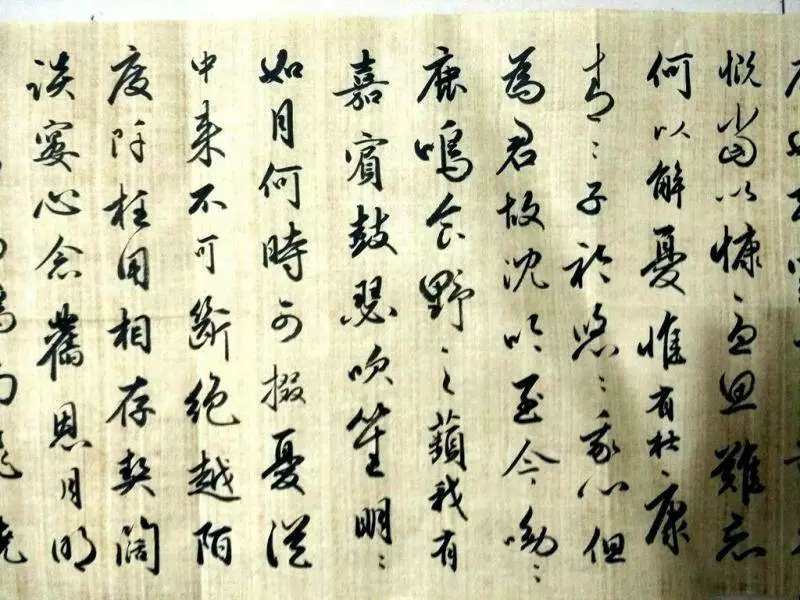 慨當以慷思難忘
何以解憂惟有杜康
青〻子衿悠〻我心但
為君故沈吟至今呦〻
鹿鳴食野之蘋我有
嘉賓鼓瑟吹笙明〻
如月何時可掇憂從
中来不可斷絕越陌
度阡枉用相存契闊
談宴心念舊恩月明
南飛繞